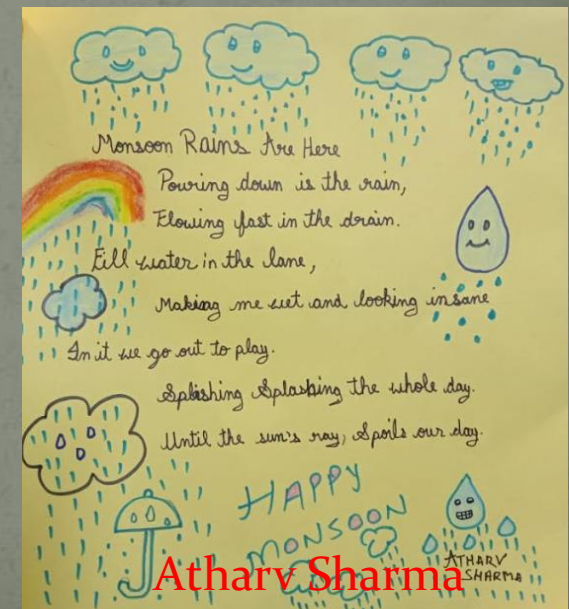 Monsoon Rains Are Here
Pouring down is the rain,
Flowing fast in the drain.
Fill water in the lane,
Making me wet and looking insane
In it we go out to play.
Splishing Splashing the whole day.
Until the sun's ray, Spoils our day.
HAPPY
MONSOON
ATHARV
SHARMA
Atharv Sharma